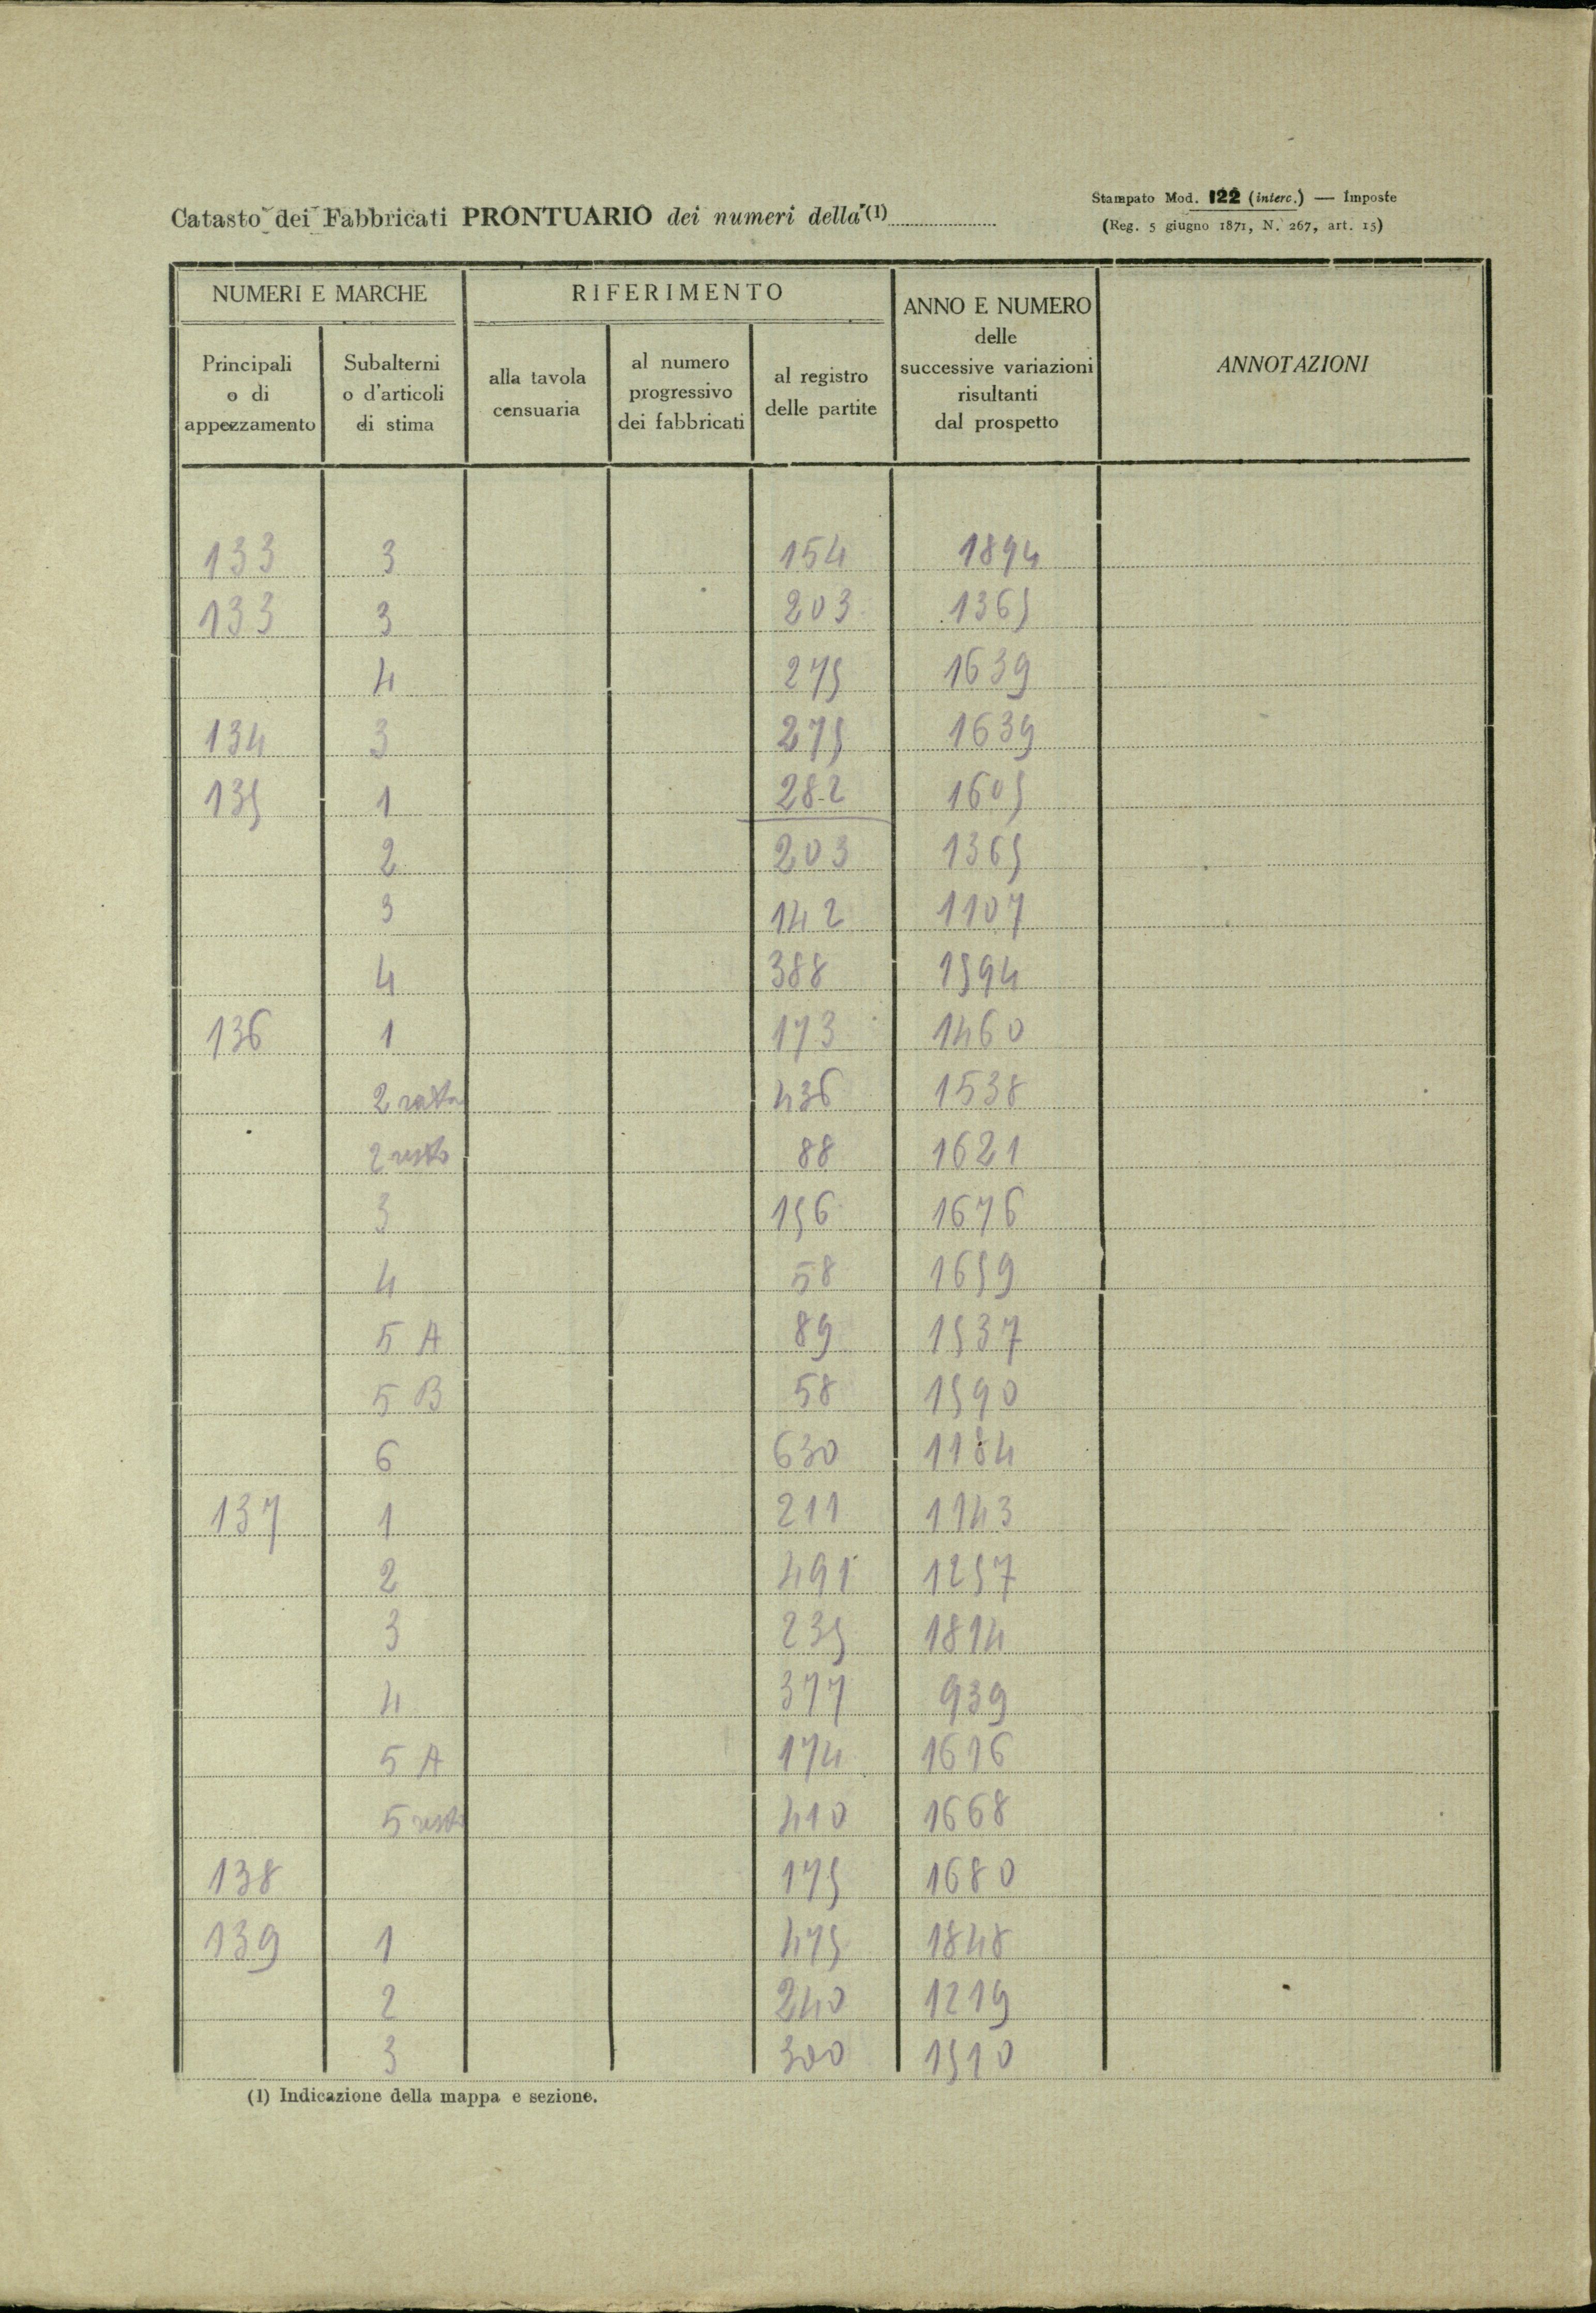 Catasto dei Fabbricati PRONTUARIO dei numeri della (1)
Stampato Mod. 122 (interc.) — Imposte
(Reg. 5 giugno 1871, N. 267, art. 15)
NUMERI E MARCHE
RIFERIMENTO
ANNO E NUMERO
delle
successive variazioni
risultanti
dal prospetto
ANNOTAZIONI
Principali
o di
appezzamento
Subalterni
o d'articoli
di stima
alla tavola
censuaria
al numero
progressivo
dei fabbricati
al registro
delle partite
133 3 154 1894
133 3 203 1365
4 275 1639
134 3 275 1639
135 1 282 1605
2 203 1365
3 142 1107
4 388 1594
136 1 173 1460
2 rata 436 1538
2 resto 88 1621
3 156 1676
4 58 1659
5 A 89 1537
5 B 58 1590
6 630 1184
137 1 211 1143
2 491 1257
3 235 1814
4 377 939
5 A 174 1616
5 resto 410 1668
138 175 1680
139 1 475 1848
2 240 1219
3 300 1510
(1) Indicazione della mappa e sezione.